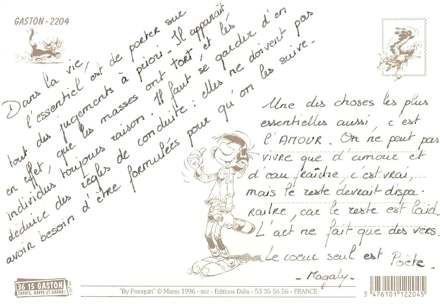 GASTON - 2204
Dans la vie,
l'essentiel est de porter sur
tout des jugements à priori. Il apparaît,
en effet, que les masses ont tort et les
individus toujours raison. Il faut se garder d'en
déduire des règles de conduite : elles ne doivent pas
avoir besoin d'être formulées pour qu'on les suive.
Une des choses les plus
essentielles aussi, c'est
l'AMOUR. On ne peut pas
vivre que d'amour et
d'eau fraîche, c'est vrai,...
mais le reste devrait dispa-
raître, car le reste est laid.
L'art ne fait que des vers.
Le cœur seul est Poète.
- Magaly -
36 15 GASTON
"By Franquin" © Marsu 1996 - Editions Dalix - 53 35 56 56 - FRANCE
3 476101 122045